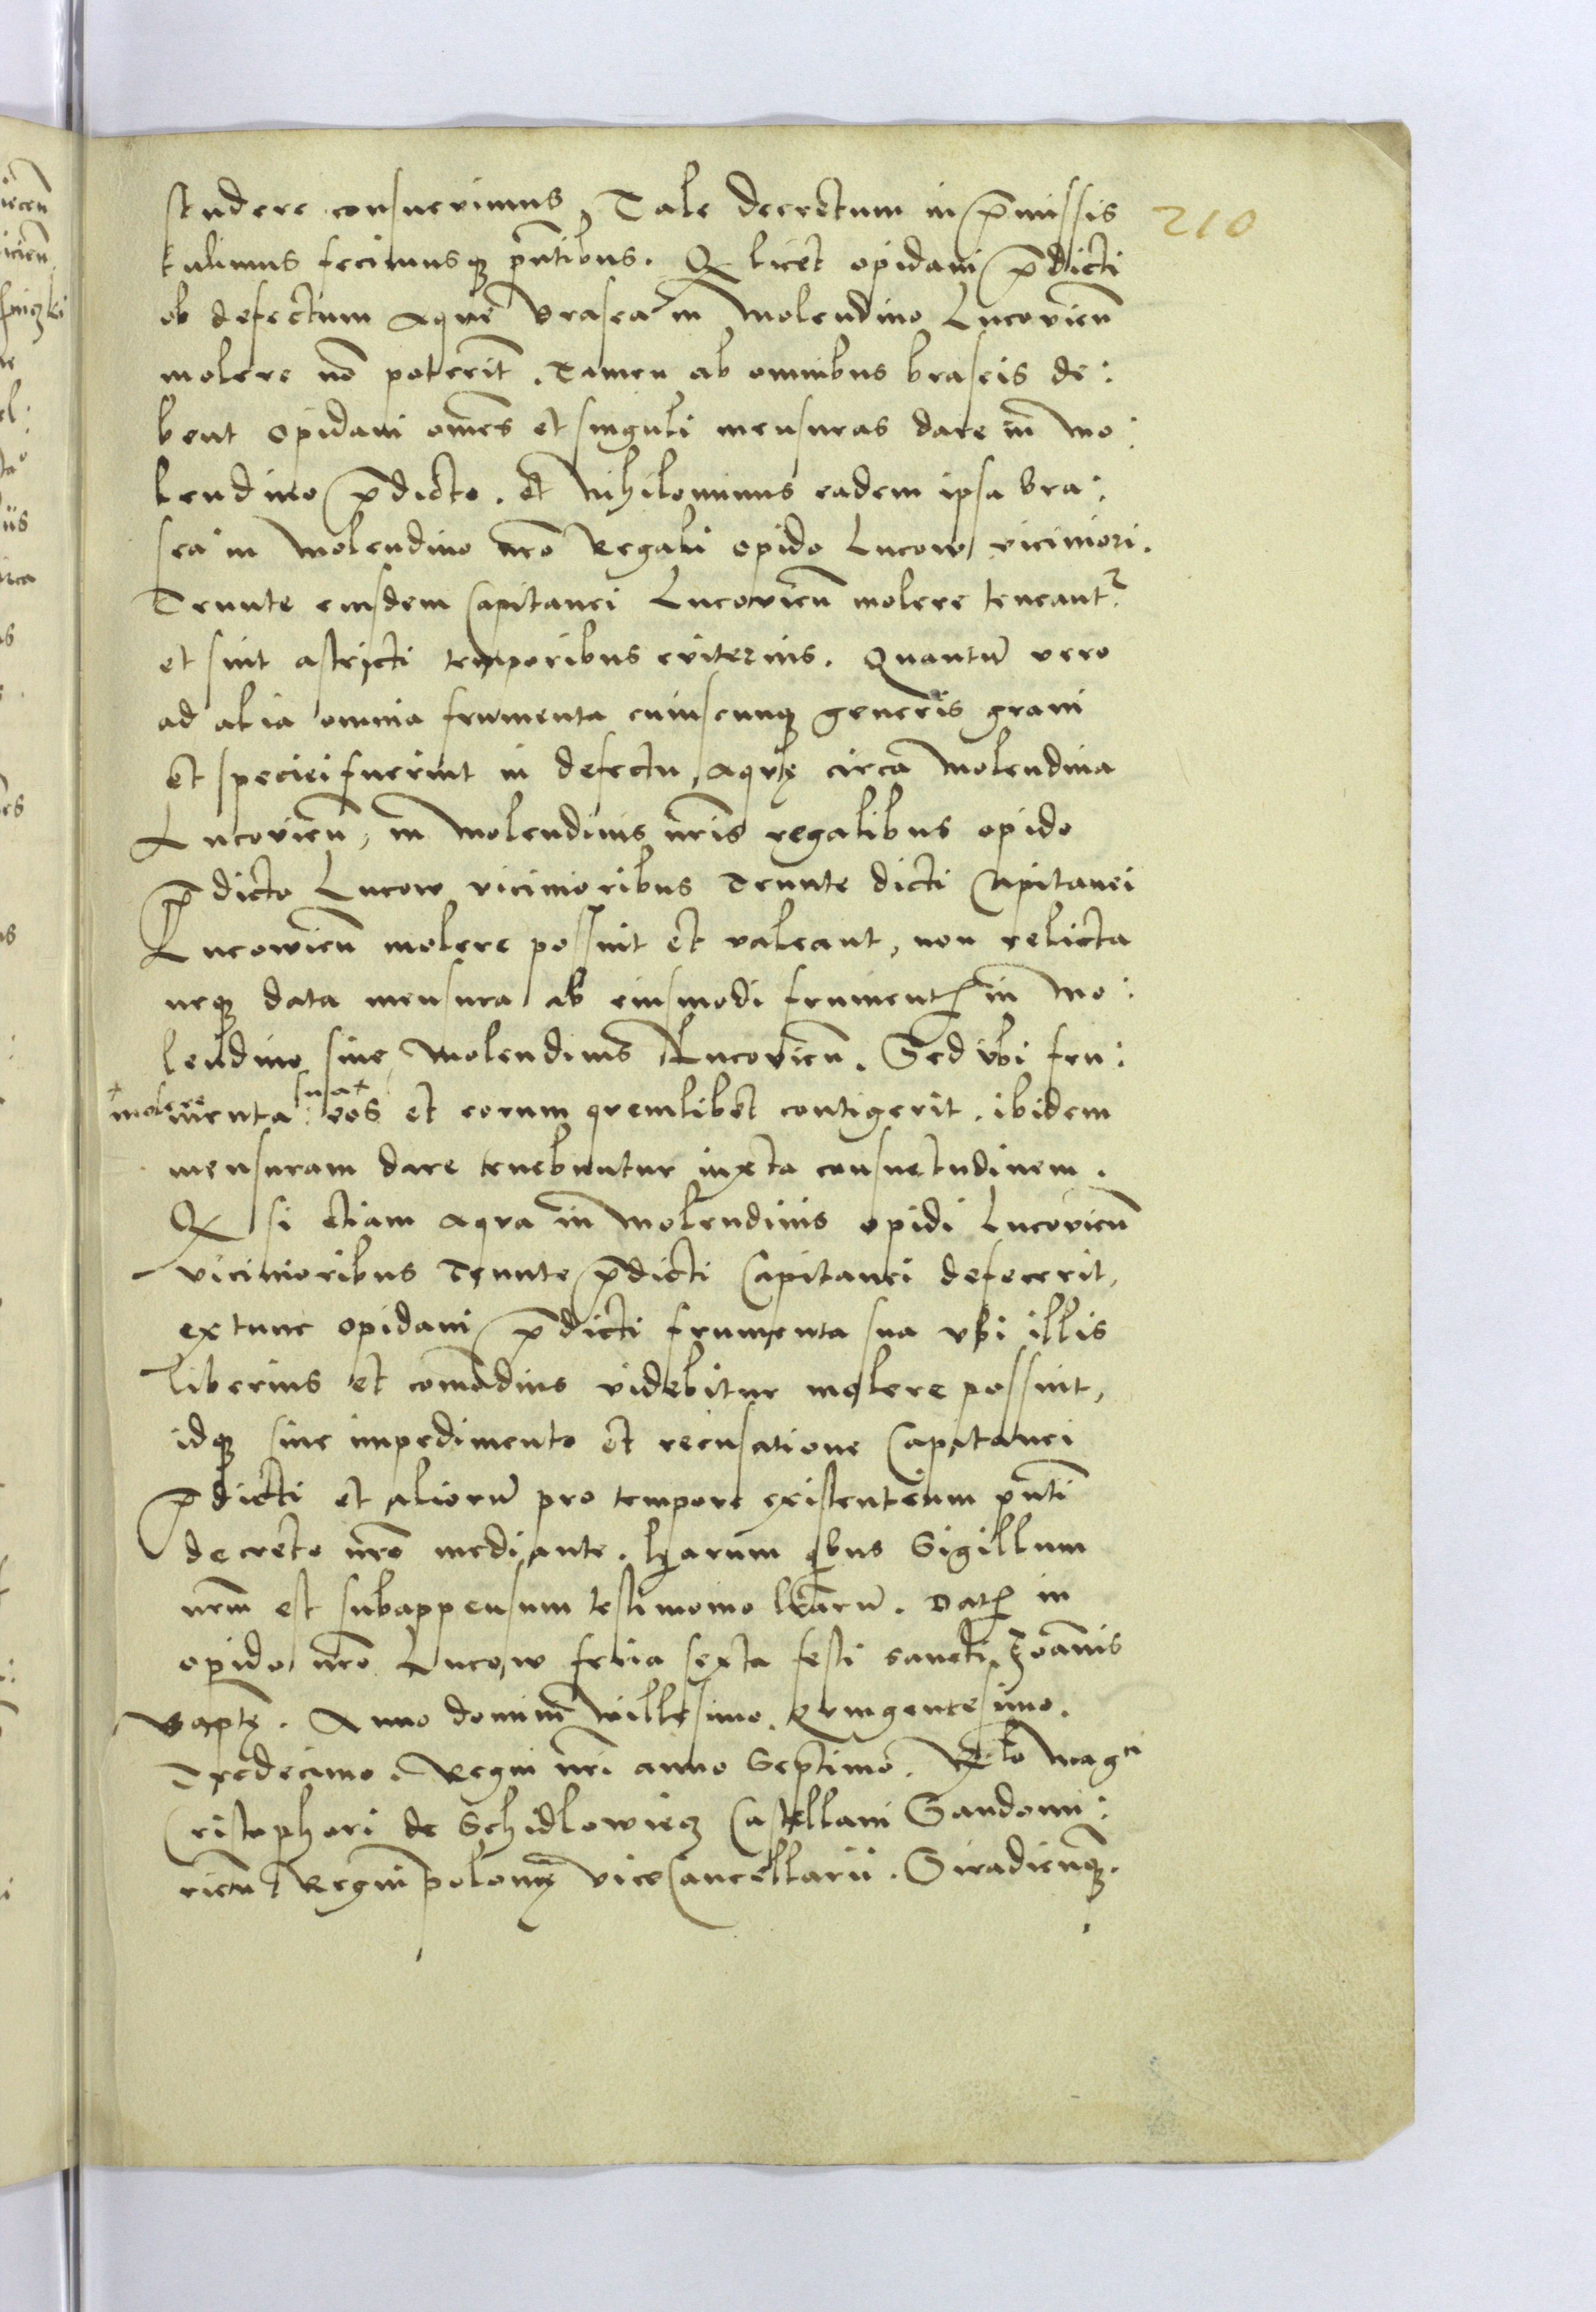 210
studere consuevimus, Tale decretum in p̄missis
tulimus fecimusq; pn̄tibus. Q licet opidani p̄dicti
ob defectum aque brasea in Molendino Lucovien̄
molere nō poterint̄. Tamen ab omnibus braseis de:
bent opidani om̄es et singuli mensuras dare in mo:
lendino p̄dicto. et Nihilominus eadem ipsa bra:
sea in Molendino nr̄o Regali opido Lucow viciniori.
Tenute eiusdem Capitanei Lucovien̄ molere teneant᷑
et sint astricti temporibus eviternis. Quantū vero
ad alia omnia frumenta cuiuscunq; generis grani
et speciei fuerint in defectu aquę circa Molendina
Lucovien̄, in Molendinis nr̄is regalibus opido
p̄dicto Lucow vicinioribus Tenute dicti Capitanei
Lucowien̄ molere possint et valeant, non relicta
neq; data mensura ab eiusmodi frument̄ in Mo:
lendino sive Molendinis Lucovien̄. Sed ubi fru:
menta sua + eos et eorum quemlibet contigerit. ibidem
+ molere
mensuram dare tenebuntur iuxta consuetudinem.
Q si etiam aqua in Molendinis opidi Lucovien̄
vicinioribus Tenute p̄dicti Capitanei defecerit,
extunc opidani p̄dicti frumenta sua ubi illis
liberius et com̄odius videbitur molere possint,
idq; sine impedimento et recusatione Capitanei
p̄dicti et aliorū pro tempore existentium pn̄ti
decreto nr̄o mediante. Harum qbus Sigillum
nr̄m est subappensum testimonio lr̄arū. Dat̄ in
opido nr̄o Lucow feria sexta festi sancti Joānis
Baptę. Anno domini Millesimo. Quingentesimo.
Tredecimo. Regni nr̄i anno Septimo. Relō Mag^ci
Cristophori de Schidlowiecz Castellani Sandomi:
rien̄ Regni polonię viceCancellarii. Siradien̄q;.